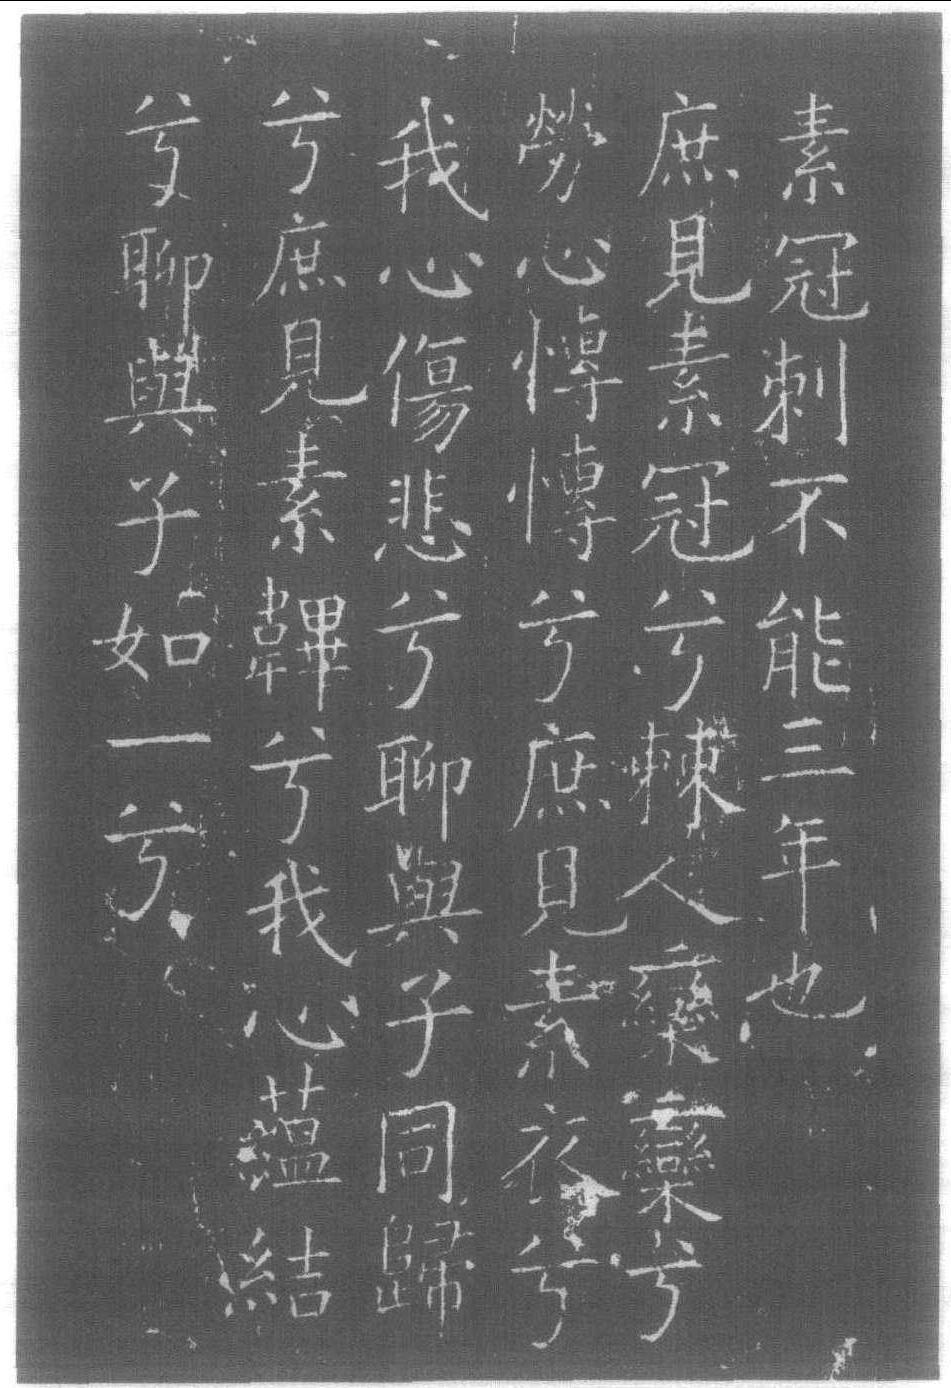 素冠刺不能三年也
庶見素冠兮棘人欒欒兮
勞心慱慱兮庶見素衣兮
我心傷悲兮聊與子同歸
兮庶見素韠兮我心蘊結
兮聊與子如一兮